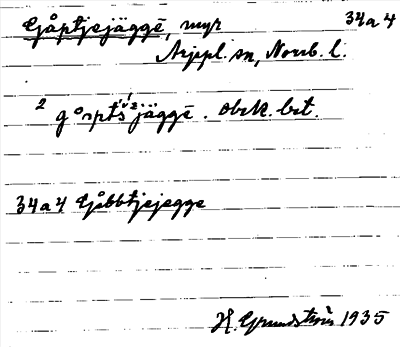 Gåptjejäggē, myr 34a4
Arjepl. sn, Norrb. l.
obek. bet.
34a4 Gåbbtjejegge
H. Grundström 1935